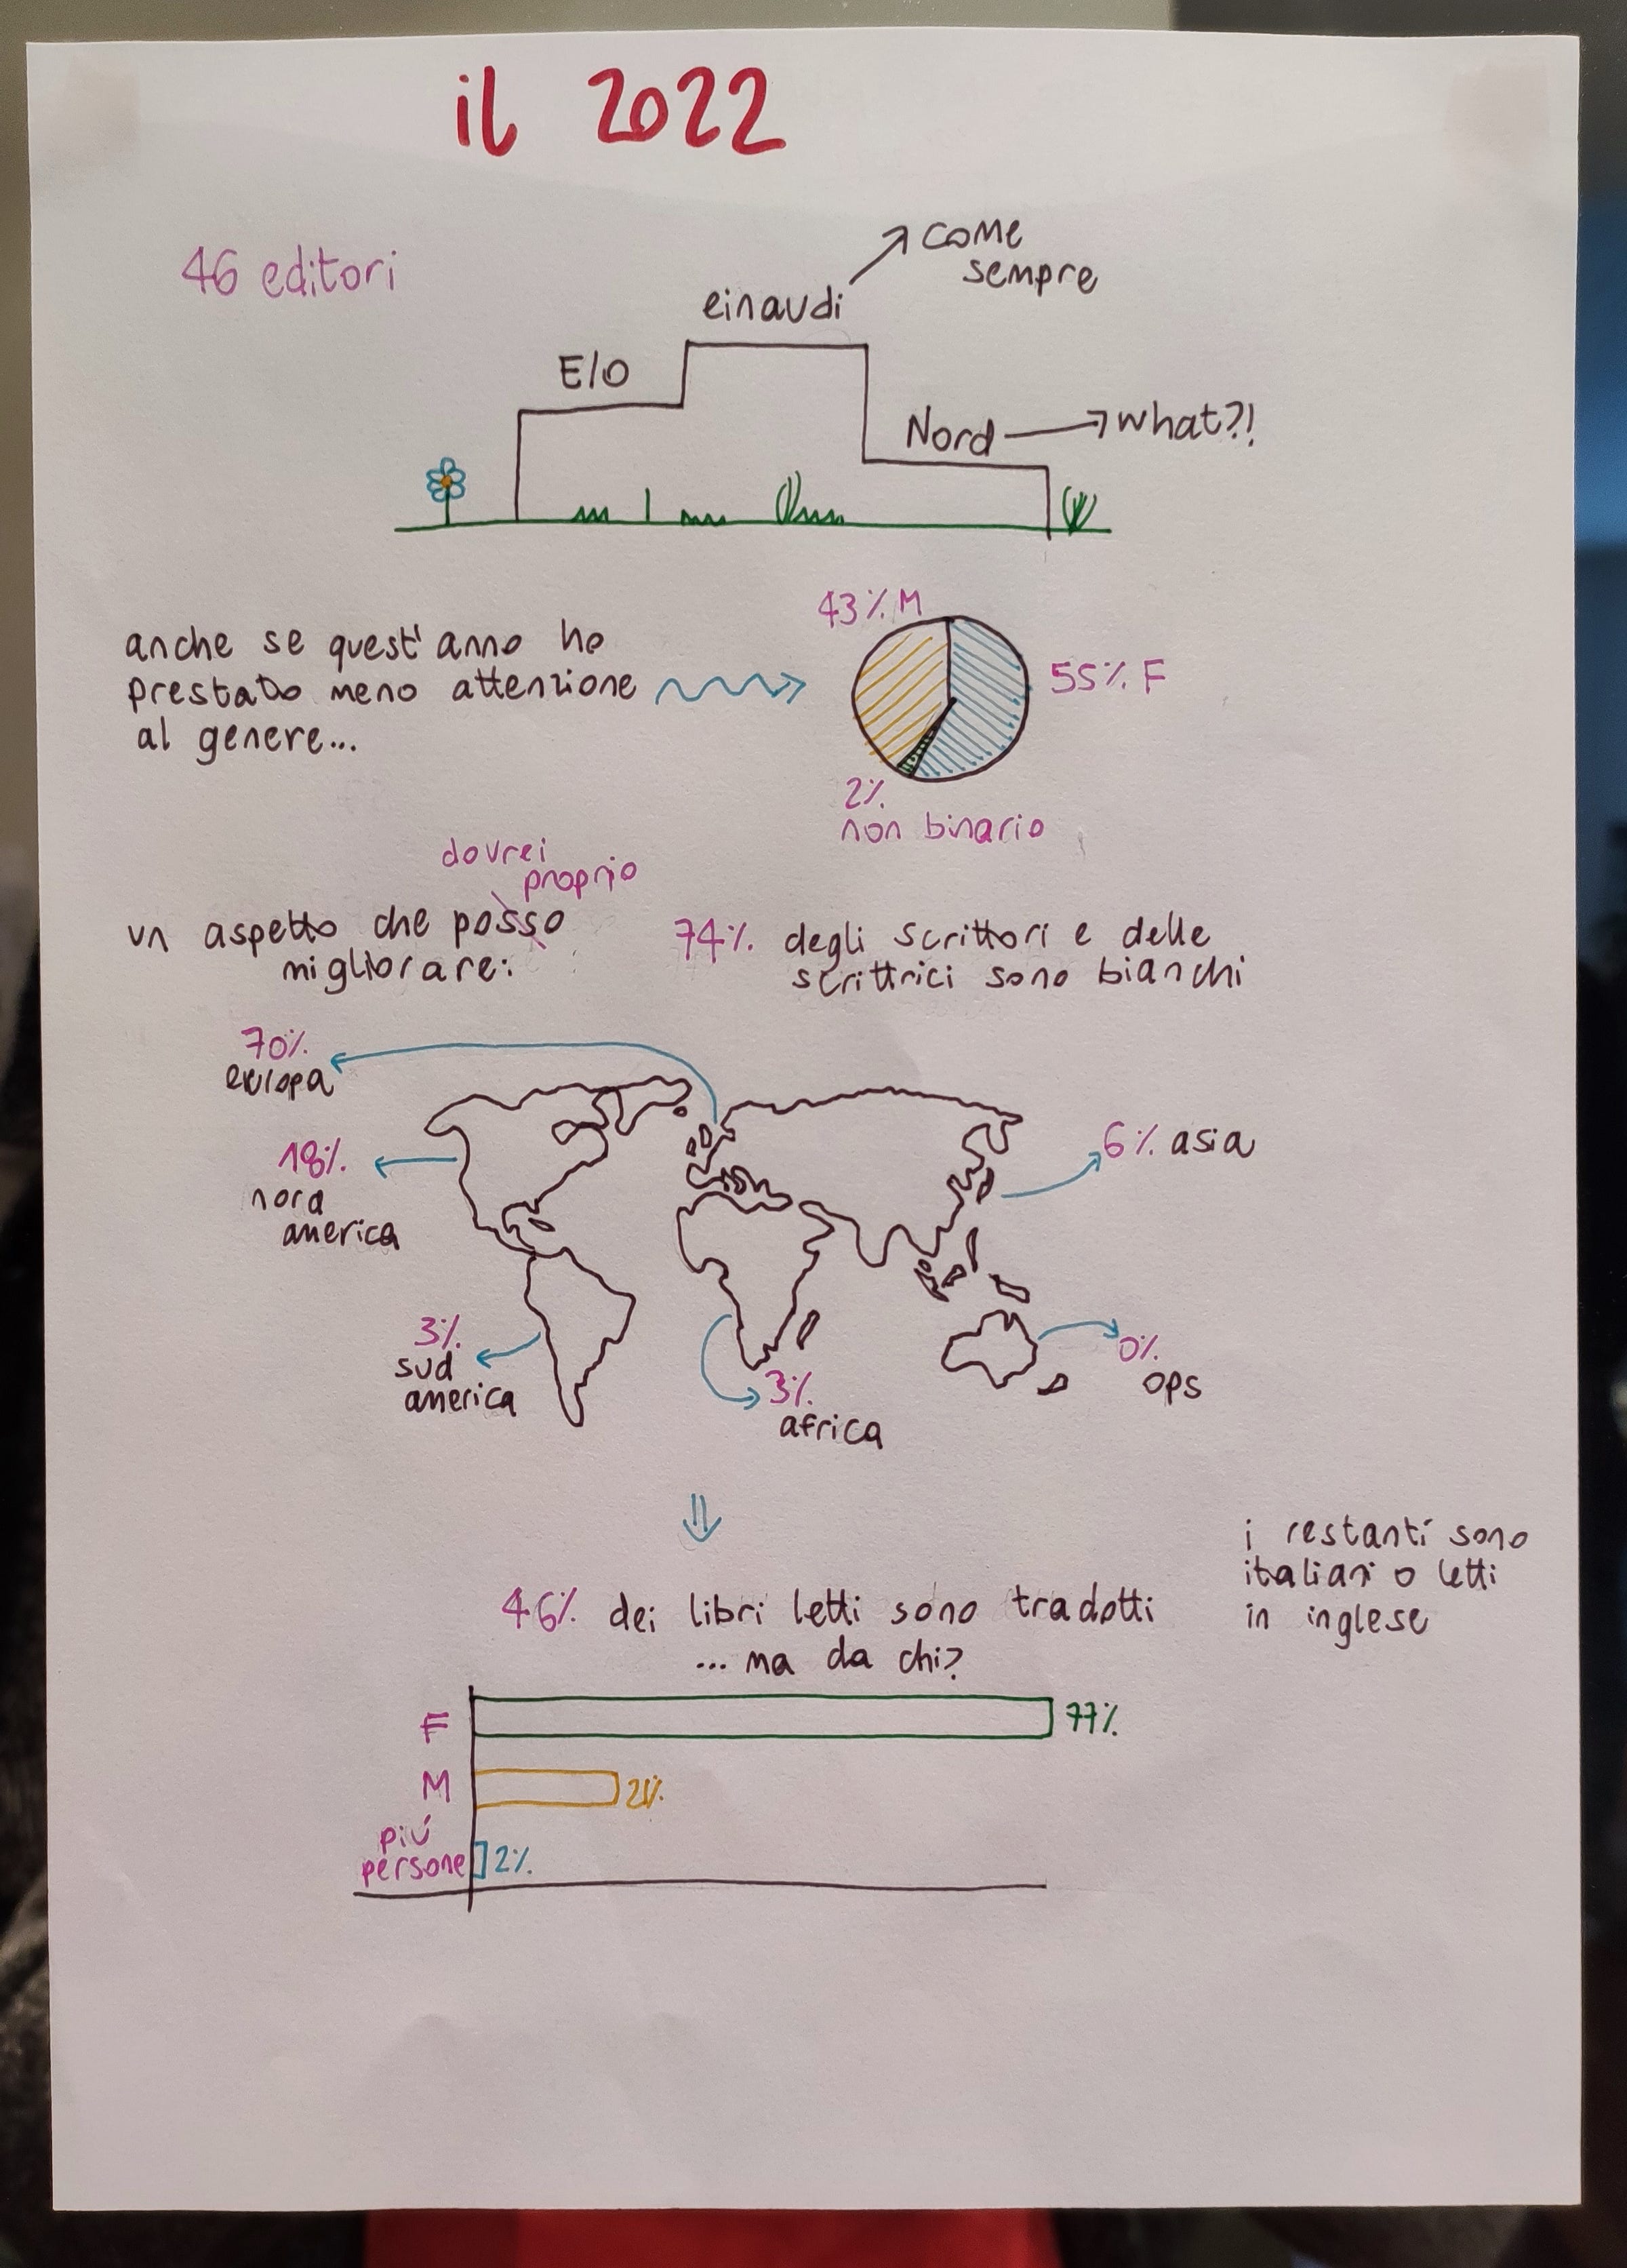 il 2022
46 editori
come
sempre
einaudi
E/O
Nord
what?!
anche se quest'anno ho
prestato meno attenzione
al genere...
43% M
55% F
2%
non binario
dovrei
proprio
un aspetto che posso
migliorare:
74% degli scrittori e delle
scrittrici sono bianchi
70%
europa
18%
nord
america
6% asia
3%
sud
america
3%
africa
0%
ops
46% dei libri letti sono tradotti
... ma da chi?
i restanti sono
italiani o letti
in inglese
F
77%
M
21%
piú
persone
2%